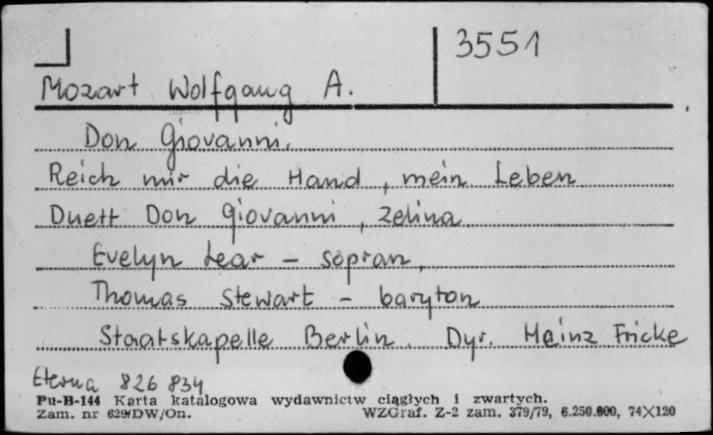 3551
Mozart Wolfgang A.
Don Giovanni.
Reich mir die Hand, mein Leben
Duett Don Giovanni, Zelina
Evelyn Lear - sopran,
Thomas Stewart - baryton
Staatskapelle Berlin. Dyr. Heinz Fricke
Eterna 826 834
Pu-B-144 Karta katalogowa wydawnictw ciągłych i zwartych.
Zam. nr 629/DW/On. WZGraf. Z-2 zam. 379/79, 6.250.000, 74X120